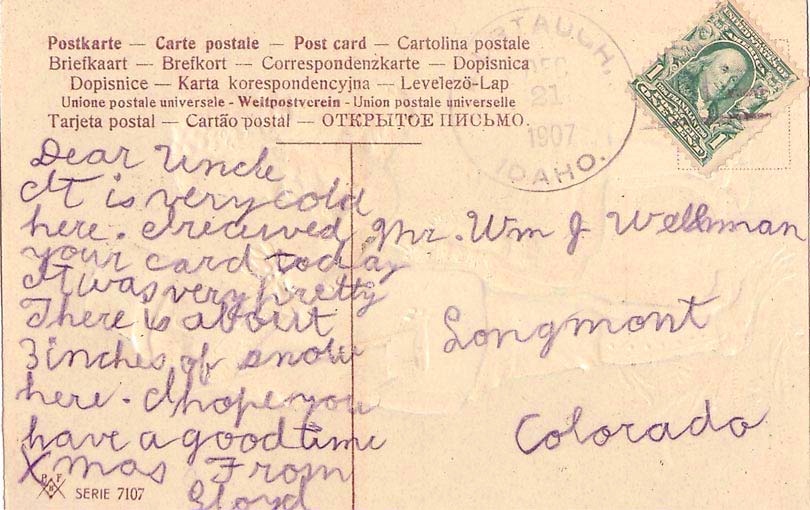 Postkarte — Carte postale — Post card — Cartolina postale
Briefkaart — Brefkort — Correspondenzkarte — Dopisnica
Dopisnice — Karta korespondencyjna — Levelező-Lap
Unione postale universale - Weltpostverein - Union postale universelle
Tarjeta postal — Cartão postal — ОТКРЫТОЕ ПИСЬМО.
DEC
21
1907
IDAHO.
1 1
Dear Uncle
It is very cold
here. I received
your card today
It was very pretty
There is about
3 inches of snow
here. I hope you
have a good time
Xmas From
Mr. Wm J. Wellman
Longmont
Colorado
P F B
SERIE 7107